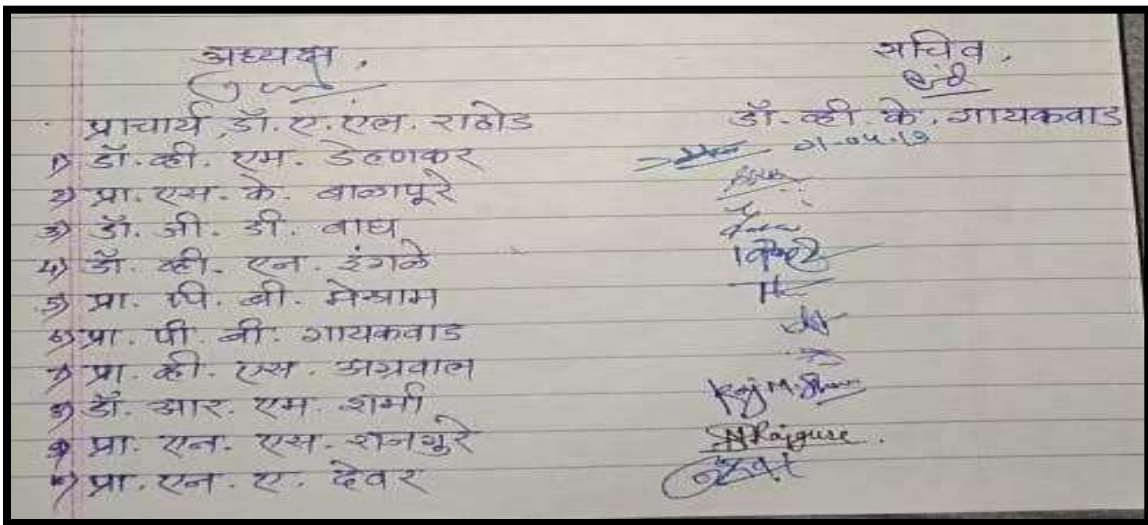 अध्यक्ष, सचिव,
प्राचार्य डॉ. ए. एल. राठोड डॉ. व्ही के. गायकवाड
1) डॉ. व्ही. एम. डेहणकर
2) प्रा. एस. के. बाळापूरे
3) डॉ. जी. डी. वाघ
4) डॉ. व्ही. एन. इंगळे
5) प्रा. पी. बी. मेश्राम
6) प्रा. पी. बी. गायकवाड
7) प्रा. व्ही. एस. अग्रवाल
8) डॉ. आर. एम. शर्मा Raj M. Sharma
9) प्रा. एन. एस. राजगूरे N Rajgure.
10) प्रा. एन. ए. देवर